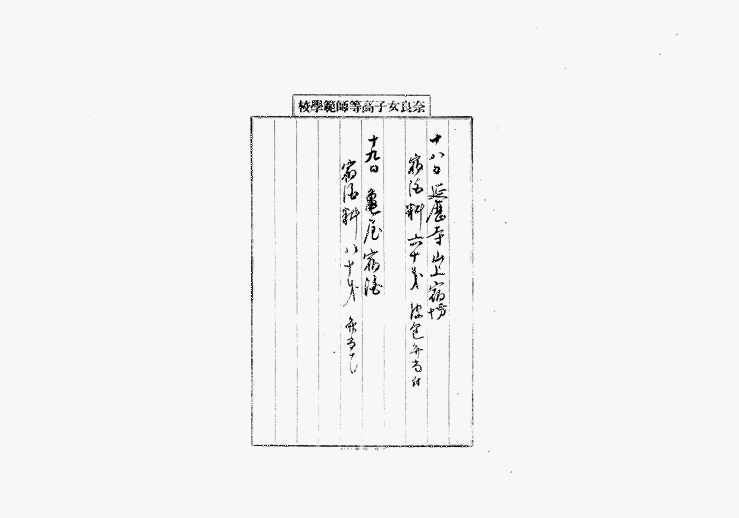 奈良女子高等師範學校
十八日 延歴寺山上宿坊
宿泊料 六十戔 弁当付
十九日 亀屋宿泊
宿泊料 八十戔 弁当なし